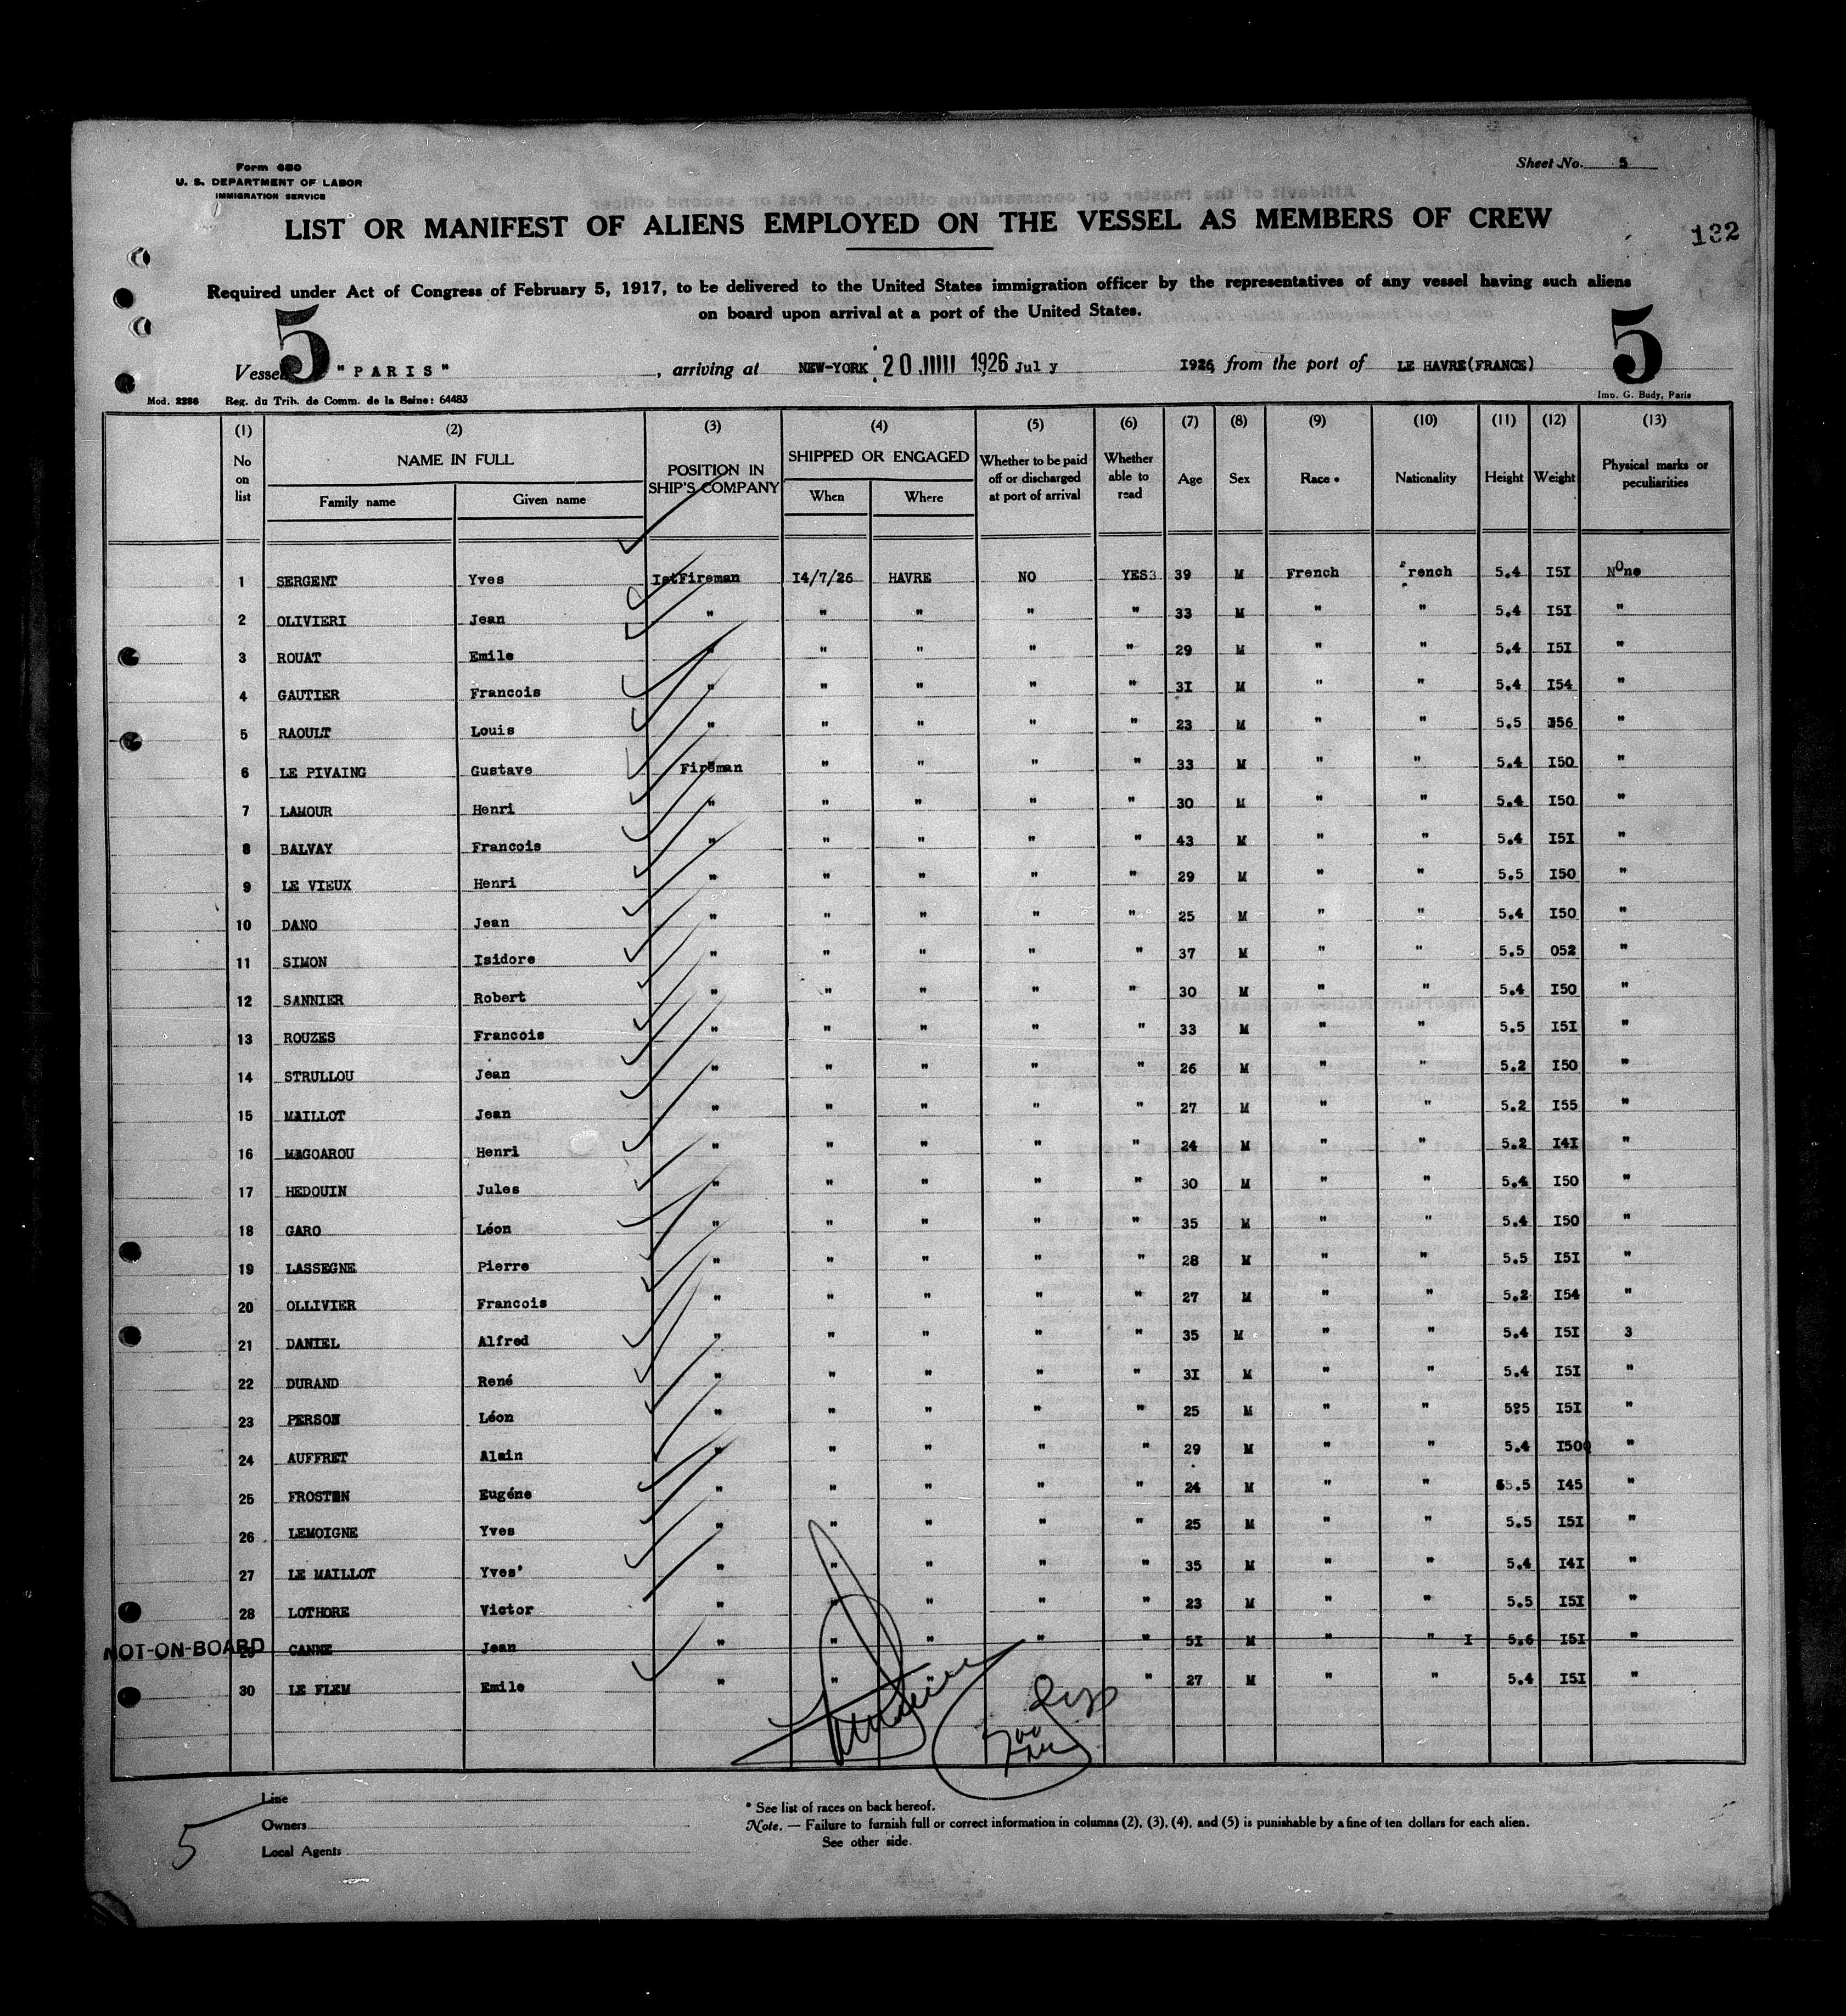 Form 680
U. S. DEPARTMENT OF LABOR
IMMIGRATION SERVICE
Sheet No. 5
LIST OR MANIFEST OF ALIENS EMPLOYED ON THE VESSEL AS MEMBERS OF CREW
132
Required under Act of Congress of February 5, 1917, to be delivered to the United States immigration officer by the representatives of any vessel having such aliens
on board upon arrival at a port of the United States.
5 5
Vessel "PARIS" , arriving at NEW-YORK 20 JUIL 1926 July 1926, from the port of LE HAVRE(FRANCE)
Mod. 2286 Reg. du Trib. de Comm. de la Seine: 64483 Imp. G. Budy, Paris
(1) (2) (3) (4) (5) (6) (7) (8) (9) (10) (11) (12) (13)
No on list NAME IN FULL Family name Given name POSITION IN SHIP'S COMPANY SHIPPED OR ENGAGED When Where Whether to be paid off or discharged at port of arrival Whether able to read Age Sex Race * Nationality Height Weight Physical marks or peculiarities
1 SERGENT Yves IstFireman I4/7/26 HAVRE NO YES3 39 M French French 5.4 I5I None
2 OLIVIERI Jean " " " " " 33 M " " 5.4 I5I "
3 ROUAT Emile " " " " " 29 M " " 5.4 I5I "
4 GAUTIER Francois " " " " " 3I M " " 5.4 I54 "
5 RAOULT Louis " " " " " 23 M " " 5.5 I56 "
6 LE PIVAING Gustave Fireman " " " " 33 M " " 5.4 I50 "
7 LAMOUR Henri " " " " " 30 M " " 5.4 I50 "
8 BALVAY Francois " " " " " 43 M " " 5.4 I5I "
9 LE VIEUX Henri " " " " " 29 M " " 5.5 I50 "
10 DANO Jean " " " " " 25 M " " 5.4 I50 "
11 SIMON Isidore " " " " " 37 M " " 5.5 052 "
12 SANNIER Robert " " " " " 30 M " " 5.4 I50 "
13 ROUZES Francois " " " " " 33 M " " 5.5 I5I "
14 STRULLOU Jean " " " " " 26 M " " 5.2 I50 "
15 MAILLOT Jean " " " " " 27 M " " 5.2 I55 "
16 MAGOAROU Henri " " " " " 24 M " " 5.2 I4I "
17 HEDOUIN Jules " " " " " 30 M " " 5.4 I50 "
18 GARO Léon " " " " " 35 M " " 5.4 I50 "
19 LASSEGNE Pierre " " " " " 28 M " " 5.5 I5I "
20 OLLIVIER Francois " " " " " 27 M " " 5.2 I54 "
21 DANIEL Alfred " " " " " 35 M " " 5.4 I5I 3
22 DURAND René " " " " " 3I M " " 5.4 I5I "
23 PERSON Léon " " " " " 25 M " " 5?5 I5I "
24 AUFFRET Alain " " " " " 29 M " " 5.4 I50 "
25 FROSTEN Eugéne " " " " " 24 M " " 55.5 I45 "
26 LEMOIGNE Yves " " " " " 25 M " " 5.5 I5I "
27 LE MAILLOT Yves' " " " " " 35 M " " 5.4 I4I "
28 LOTHORE Victor " " " " " 23 M " " 5.5 I5I "
NOT-ON-BOARD 29 CANNE Jean " " " " " 5I M " " I 5.6 I5I "
30 LE FLEM Emile " " " 27 M " " 5.4 I5I "
Line
Owners
Local Agents
5
* See list of races on back hereof.
Note. — Failure to furnish full or correct information in columns (2), (3), (4), and (5) is punishable by a fine of ten dollars for each alien.
See other side.